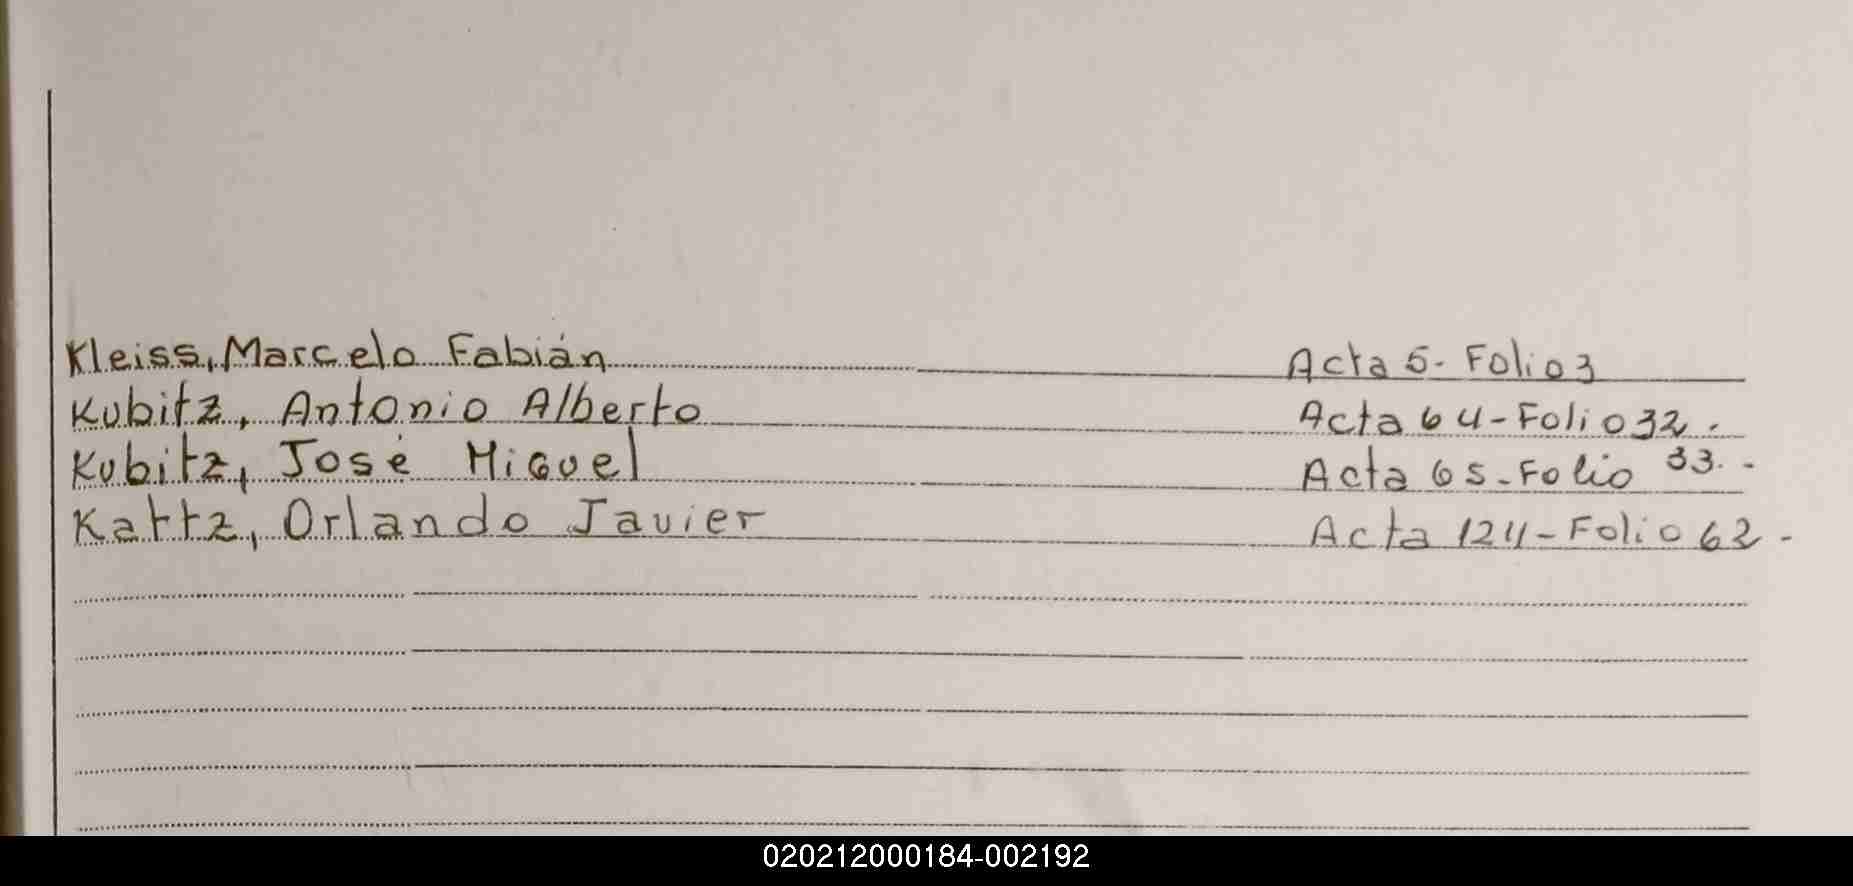 Kleiss, Marcelo Fabián Acta 5- Folio 3
Kubitz, Antonio Alberto Acta 64-Folio 32.
Kubitz, José Miguel Acta 65-Folio 33.-
Kattz, Orlando Javier Acta 124-Folio 62-
020212000184-002192